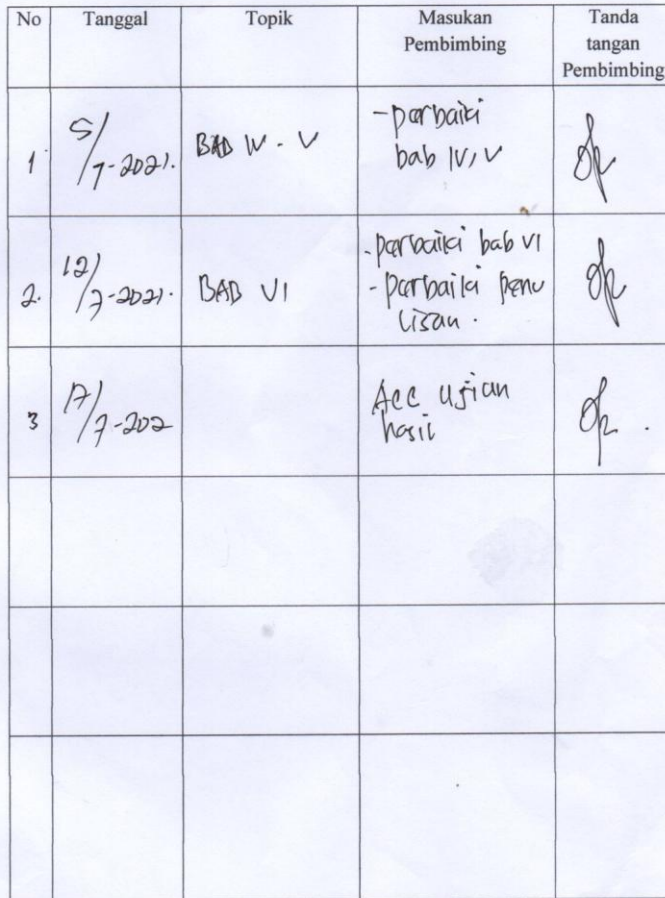 No Tanggal Topik Masukan Pembimbing Tanda tangan Pembimbing
1 5/7-2021. BAB IV - V - perbaiki
bab IV, V
2. 12/7-2021. BAB VI - perbaiki bab VI
- perbaiki penu
lisan.
3 17/7-202 Acc ujian
hasil